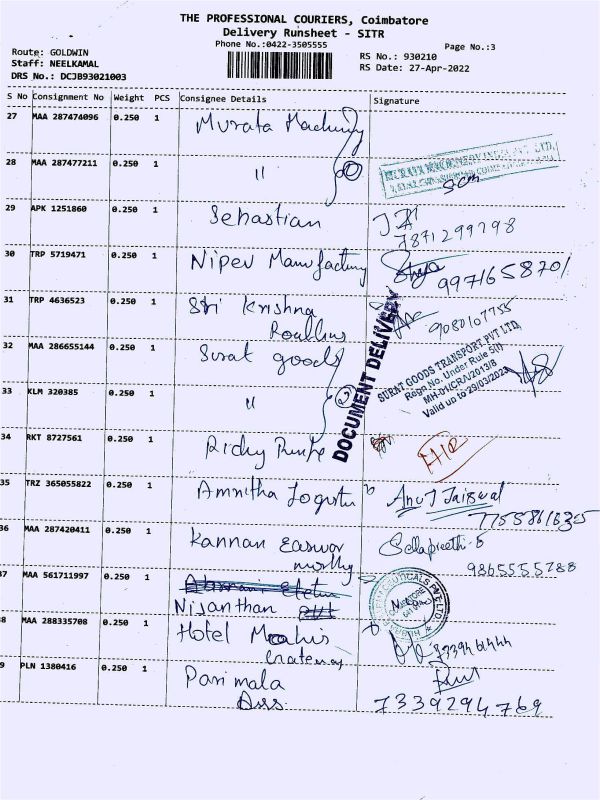 THE PROFESSIONAL COURIERS, Coimbatore
Delivery Runsheet - SITR
Phone No.:0422-3505555
Page No.:3
Route: GOLDWIN
Staff: NEELKAMAL
DRS No.: DCJB93021003
RS No.: 930210
RS Date: 27-Apr-2022
S No Consignment No Weight PCS Consignee Details Signature
27 MAA 287474096 0.250 1 Murata Machinery
28 MAA 287477211 0.250 1 "
29 APK 1251860 0.250 1 Sebastian
7871299798
30 TRP 5719471 0.250 1 Nipev Manufactury
9971658701
31 TRP 4636523 0.250 1 Sri Krishna
9080107755
32 MAA 286655144 0.250 1 Surat goods
DOCUMENT DELIVERY
SURAT GOODS TRANSPORT PVT LTD,
Regn No. Under Rule 5(1)
MH-01/CRA/2013/8
Valid up to 29/03/2023
33 KLM 320385 0.250 1 "
34 RKT 8727561 0.250 1
35 TRZ 365055822 0.250 1 Amritha
Anuj Jaiswal
36 MAA 287420411 0.250 1 Kannan Easwar
moorthy
9865555288
37 MAA 561711997 0.250 1
Nisanthan
38 MAA 288335708 0.250 1 Hotel
39 PLN 1380416 0.250 1 Parimala
7339294769